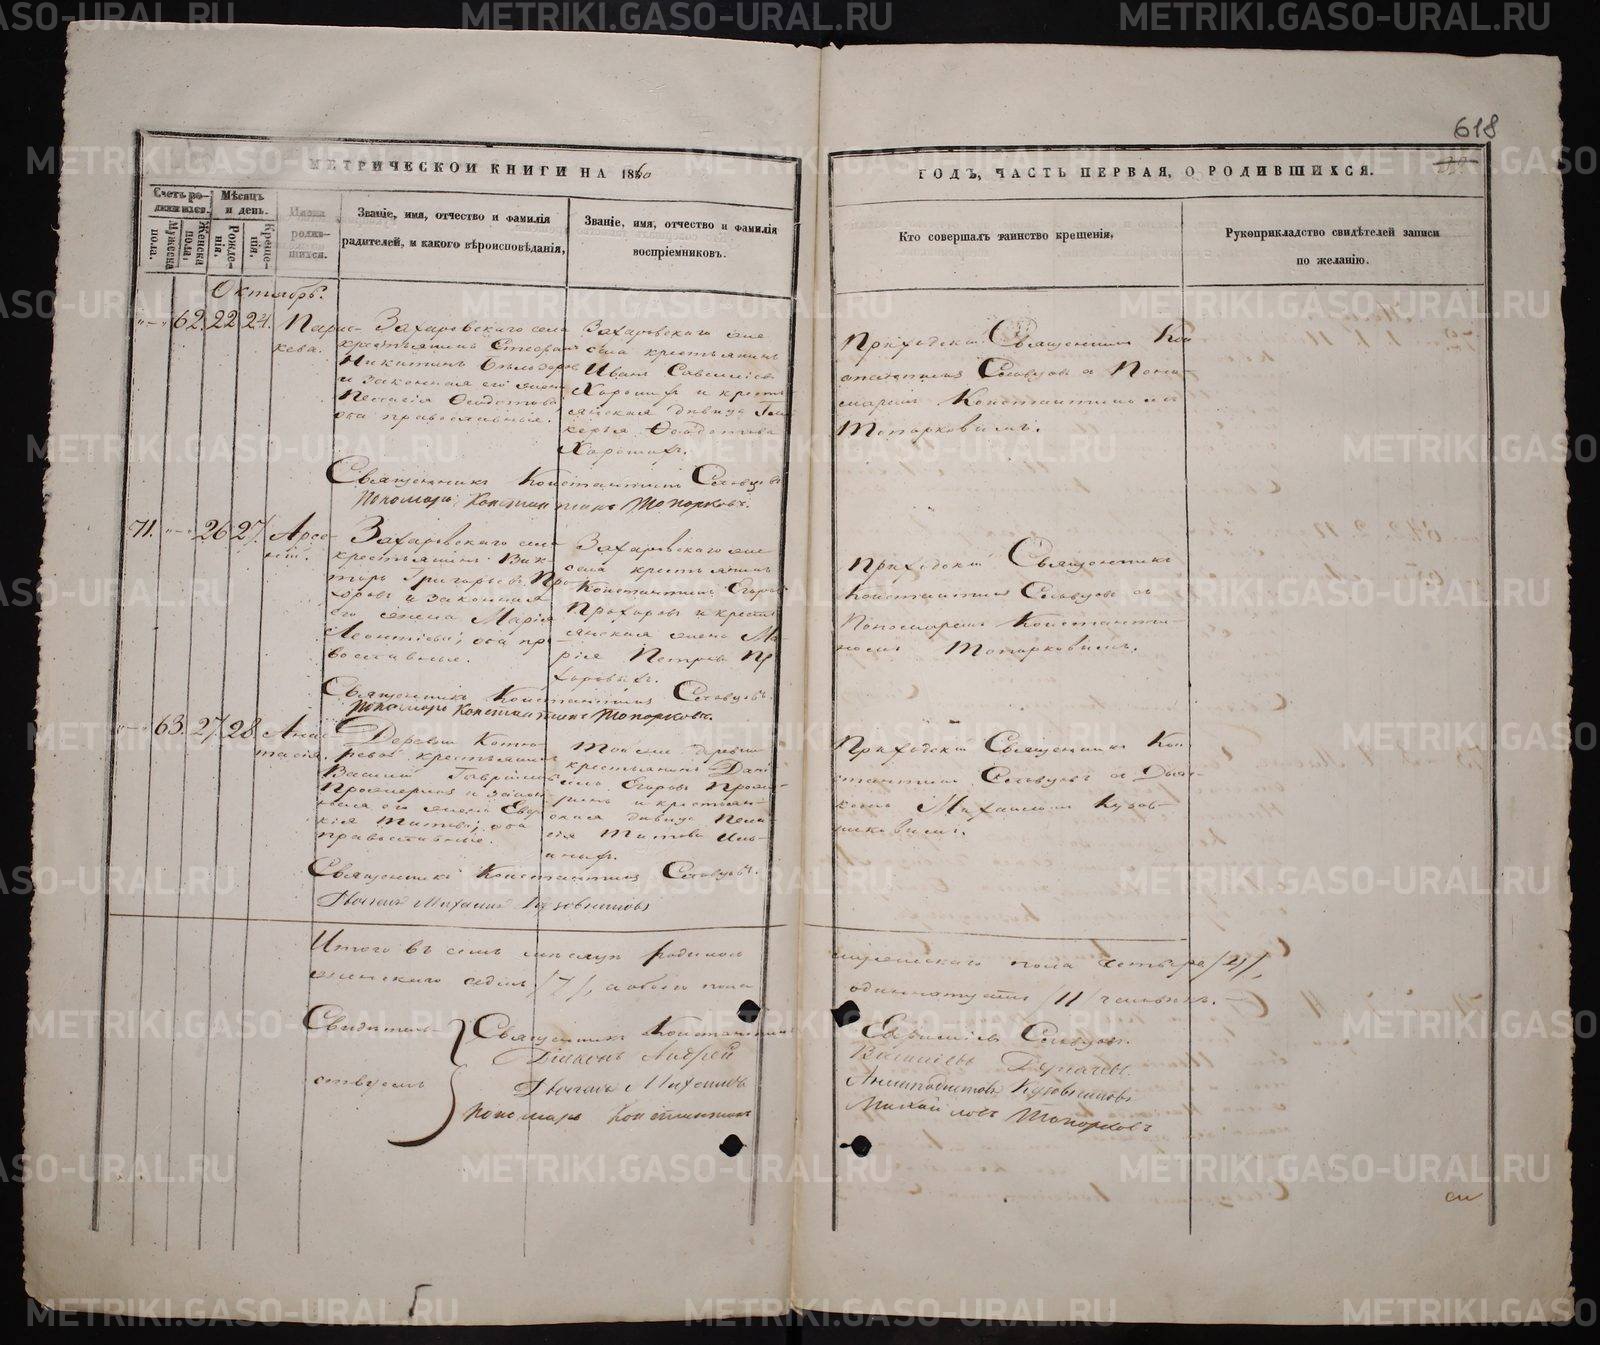 618
МЕТРИЧЕСКОЙ КНИГИ НА 1860
ГОДЪ, ЧАСТЬ ПЕРВАЯ, О РОДИВШИХСЯ.
Счетъ родившихся.
Мужеска пола.
Женска пола.
Мѣсяцъ и день.
Рожденія.
Крещенія.
Имена родившихся.
Званіе, имя, отчество и фамилія
родителей, и какого вѣроисповѣданія,
Званіе, имя, отчество и фамилія
воспріемниковъ.
Кто совершалъ таинство крещенія,
Рукоприкладство свидѣтелей записи
по желанію.
Октябрь.
62. 22 24.
Параскева.
Захаровскаго села
крестьянинъ Стефанъ
Никитинъ
и законная его жена
Пелагія Ѳедотова,
оба православные.
Захаровскаго же
села крестьянинъ
Иванъ Савеліевъ
Хорошихъ и крестьянская дѣвица
Ѳедотова
Хорошихъ.
Приходскій Священникъ Константинъ Словцовъ съ Пономаремъ Константиномъ
Топорковымъ.
Священникъ Константинъ Словцовъ
Пономарь Константинъ Топорковъ.
71. 26 27.
Арсеній.
Захаровскаго села
крестьянинъ Викторъ Григорьевъ Прохоровъ и законная
его жена Марія
Леонтіева, оба православные.
Захаровскаго же
села крестьянинъ
Константинъ Егоровъ
Прохоровъ и крестьянская жена Марія Петрова Прохоровыхъ.
Приходскій Священникъ
Константинъ Словцовъ съ
Пономаремъ Константиномъ Топорковымъ.
Священникъ Константинъ Словцовъ.
Пономарь Константинъ Топорковъ.
63. 27. 28.
Анастасія.
Деревни
крестьянинъ
Василій Гавриловъ
и законная его жена Евдокія Титова, оба
православные.
Той же деревни
крестьянинъ Даніилъ Егоровъ
и крестьянская дѣвица Пелагія Титова Ильиныхъ.
Приходскій Священникъ Константинъ Словцовъ съ Дьячкомъ Михаиломъ Кузовниковымъ.
Священникъ Константинъ Словцовъ.
Дьячекъ Михаилъ Кузовниковъ
Итого въ семъ мѣсяцѣ родилось
мужескаго пола четыре /4/,
женскаго седмь /7/, а обоего пола
одиннадцать /11/ человѣкъ.
Свидѣтельствуемъ
Священникъ Константинъ
Евфиміевъ Словцовъ.
Діаконъ Андрей
Васильевъ
Дьячекъ Михаилъ
Кузовниковъ
Пономарь Константинъ
Михайловъ Топорковъ
METRIKI.GASO-URAL.RU